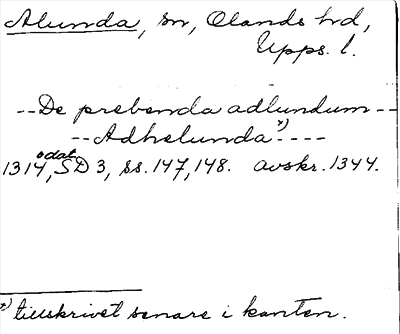 Alunda, sn, Olands hd,
Upps. l.
--De prebenda adlundum--
--Adhelunda*)----
odat.
1314, SD 3, ss. 147, 148. avskr. 1344.
*) tillskrivet senare i kanten.